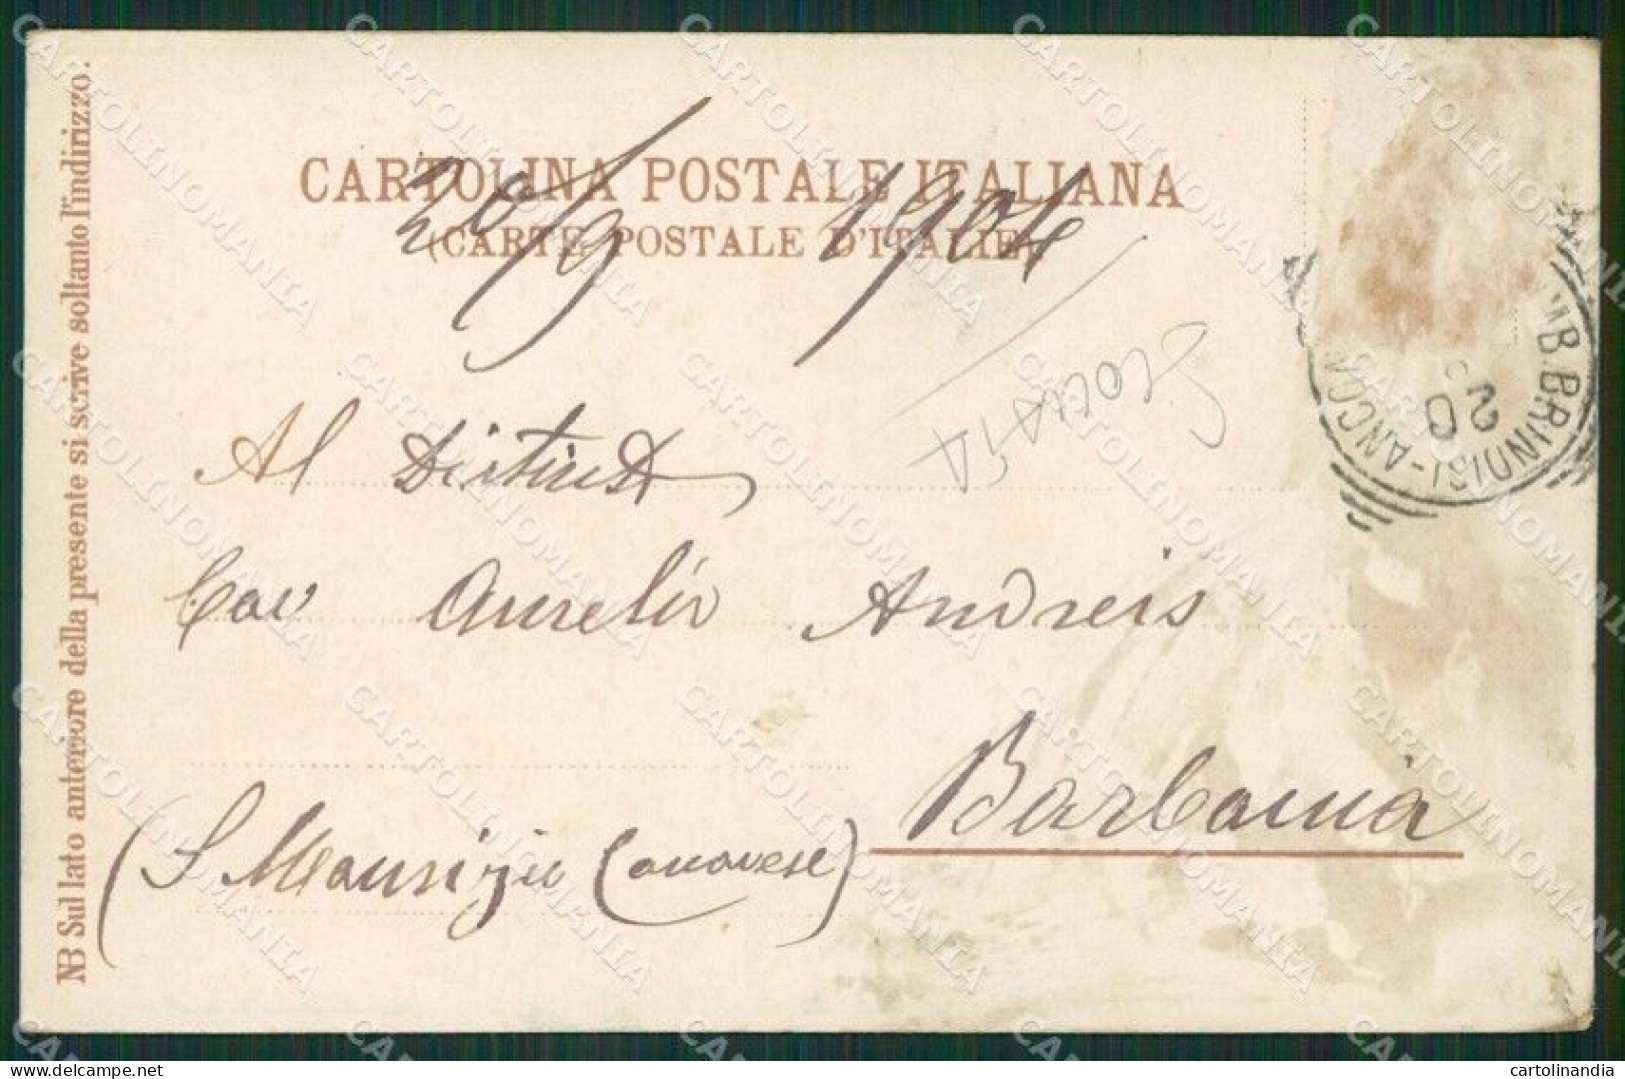 CARTOLINA POSTALE ITALIANA
(CARTE POSTALE D'ITALIE)
20/9 1904
Al Distinto
Cav Aurelio Andreis
Barbania
(S. Maurizio Canavese)
NB Sul lato anteriore della presente si scrive soltanto l'indirizzo.
AMB. BRINDISI-ANCONA
20
CARTOLINOMANIA
cartolinandia